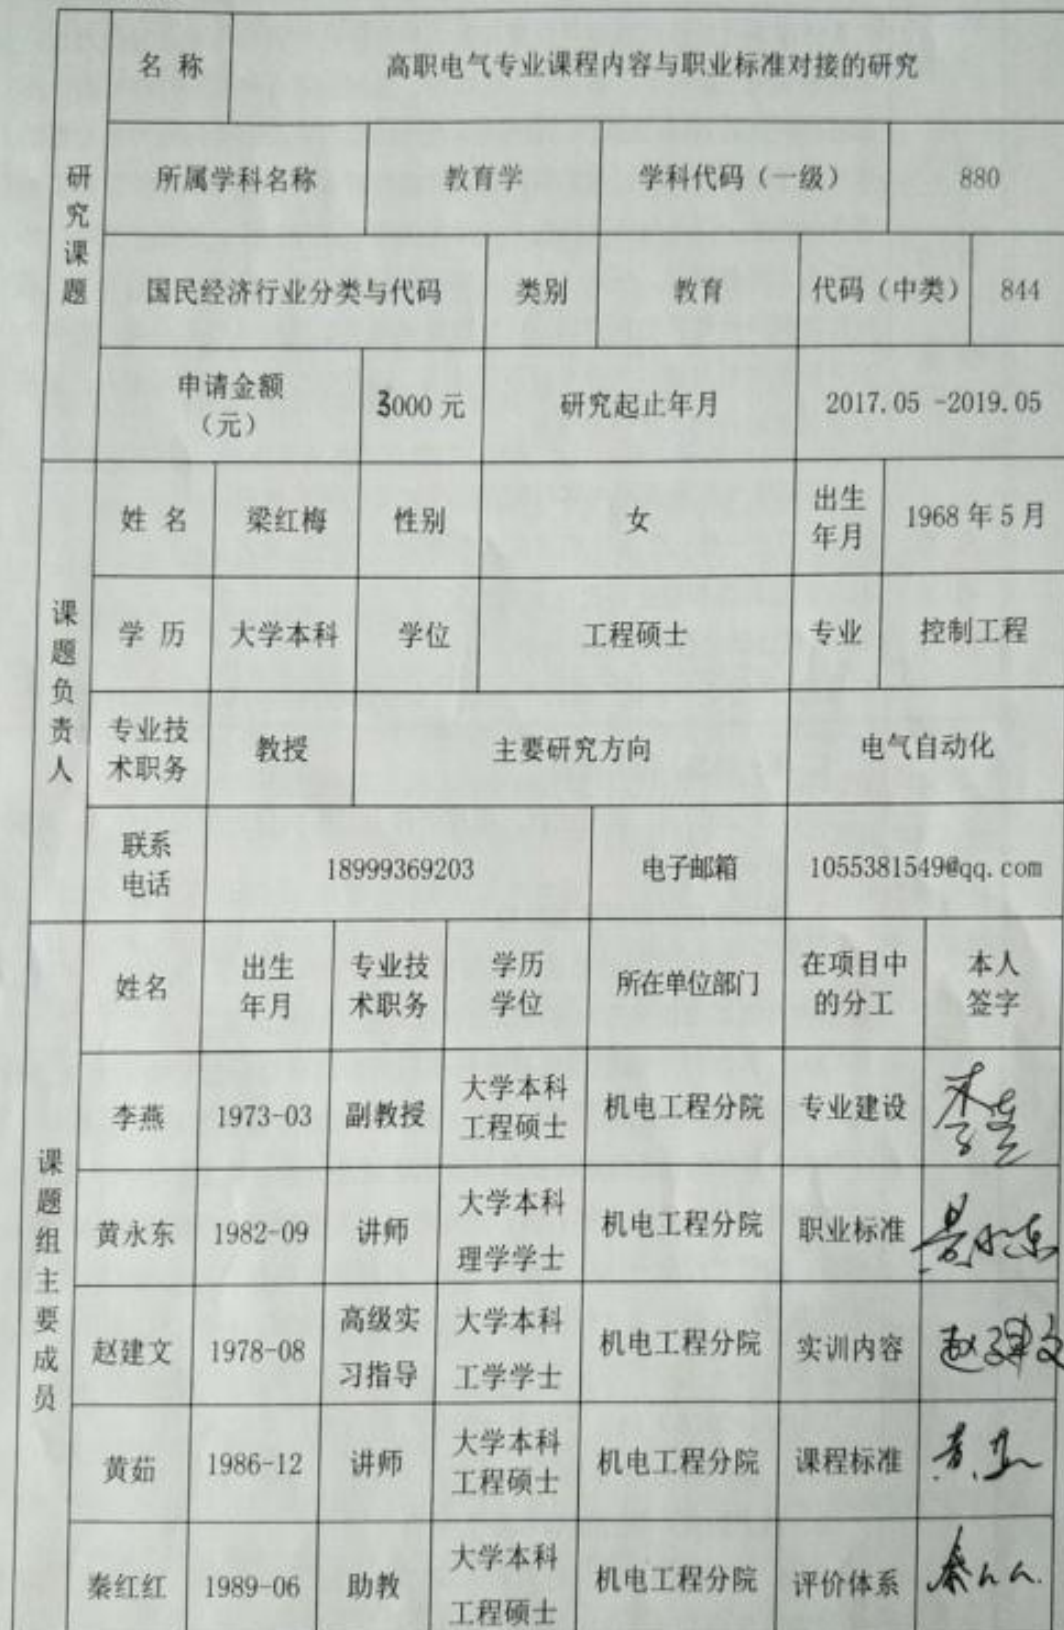 名 称 高职电气专业课程内容与职业标准对接的研究
研究课题
所属学科名称 教育学 学科代码（一级） 880
国民经济行业分类与代码 类别 教育 代码（中类） 844
申请金额
（元）
3000 元 研究起止年月 2017.05 -2019.05
课题负责人
姓 名 梁红梅 性别 女
出生
年月
1968 年 5 月
学 历 大学本科 学位 工程硕士 专业 控制工程
专业技
术职务
教授 主要研究方向 电气自动化
联系
电话
18999369203 电子邮箱 1055381549@qq.com
课题组主要成员
姓名
出生
年月
专业技
术职务
学历
学位
所在单位部门
在项目中
的分工
本人
签字
李燕 1973-03 副教授
大学本科
工程硕士
机电工程分院 专业建设 李燕
黄永东 1982-09 讲师
大学本科
理学学士
机电工程分院 职业标准 黄永东
赵建文 1978-08
高级实
习指导
大学本科
工学学士
机电工程分院 实训内容 赵建文
黄茹 1986-12 讲师
大学本科
工程硕士
机电工程分院 课程标准 黄茹
秦红红 1989-06 助教
大学本科
工程硕士
机电工程分院 评价体系 秦红红